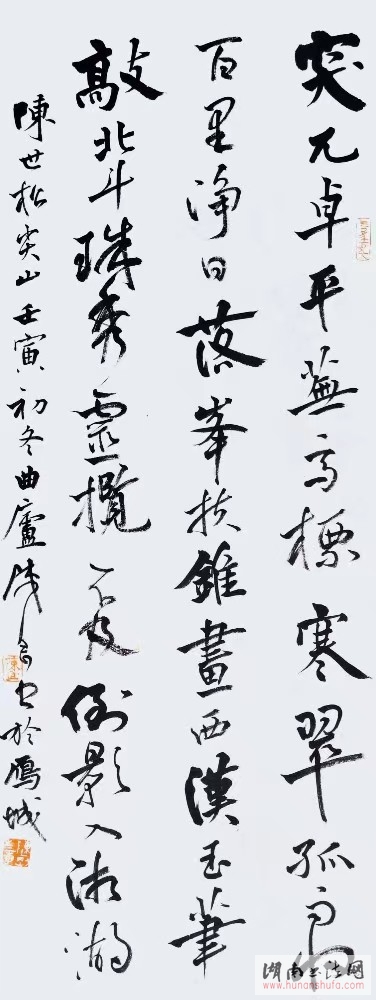 突兀卓平蕪高標寒翠孤
百里淨日落峯扶錐畫西漢玉筆
敲北斗珠秀靈攬不及倒影入湘湖
陳世松尖山壬寅初冬曲廬書於鴈城
湖南书法网
www.hunanshufa.com